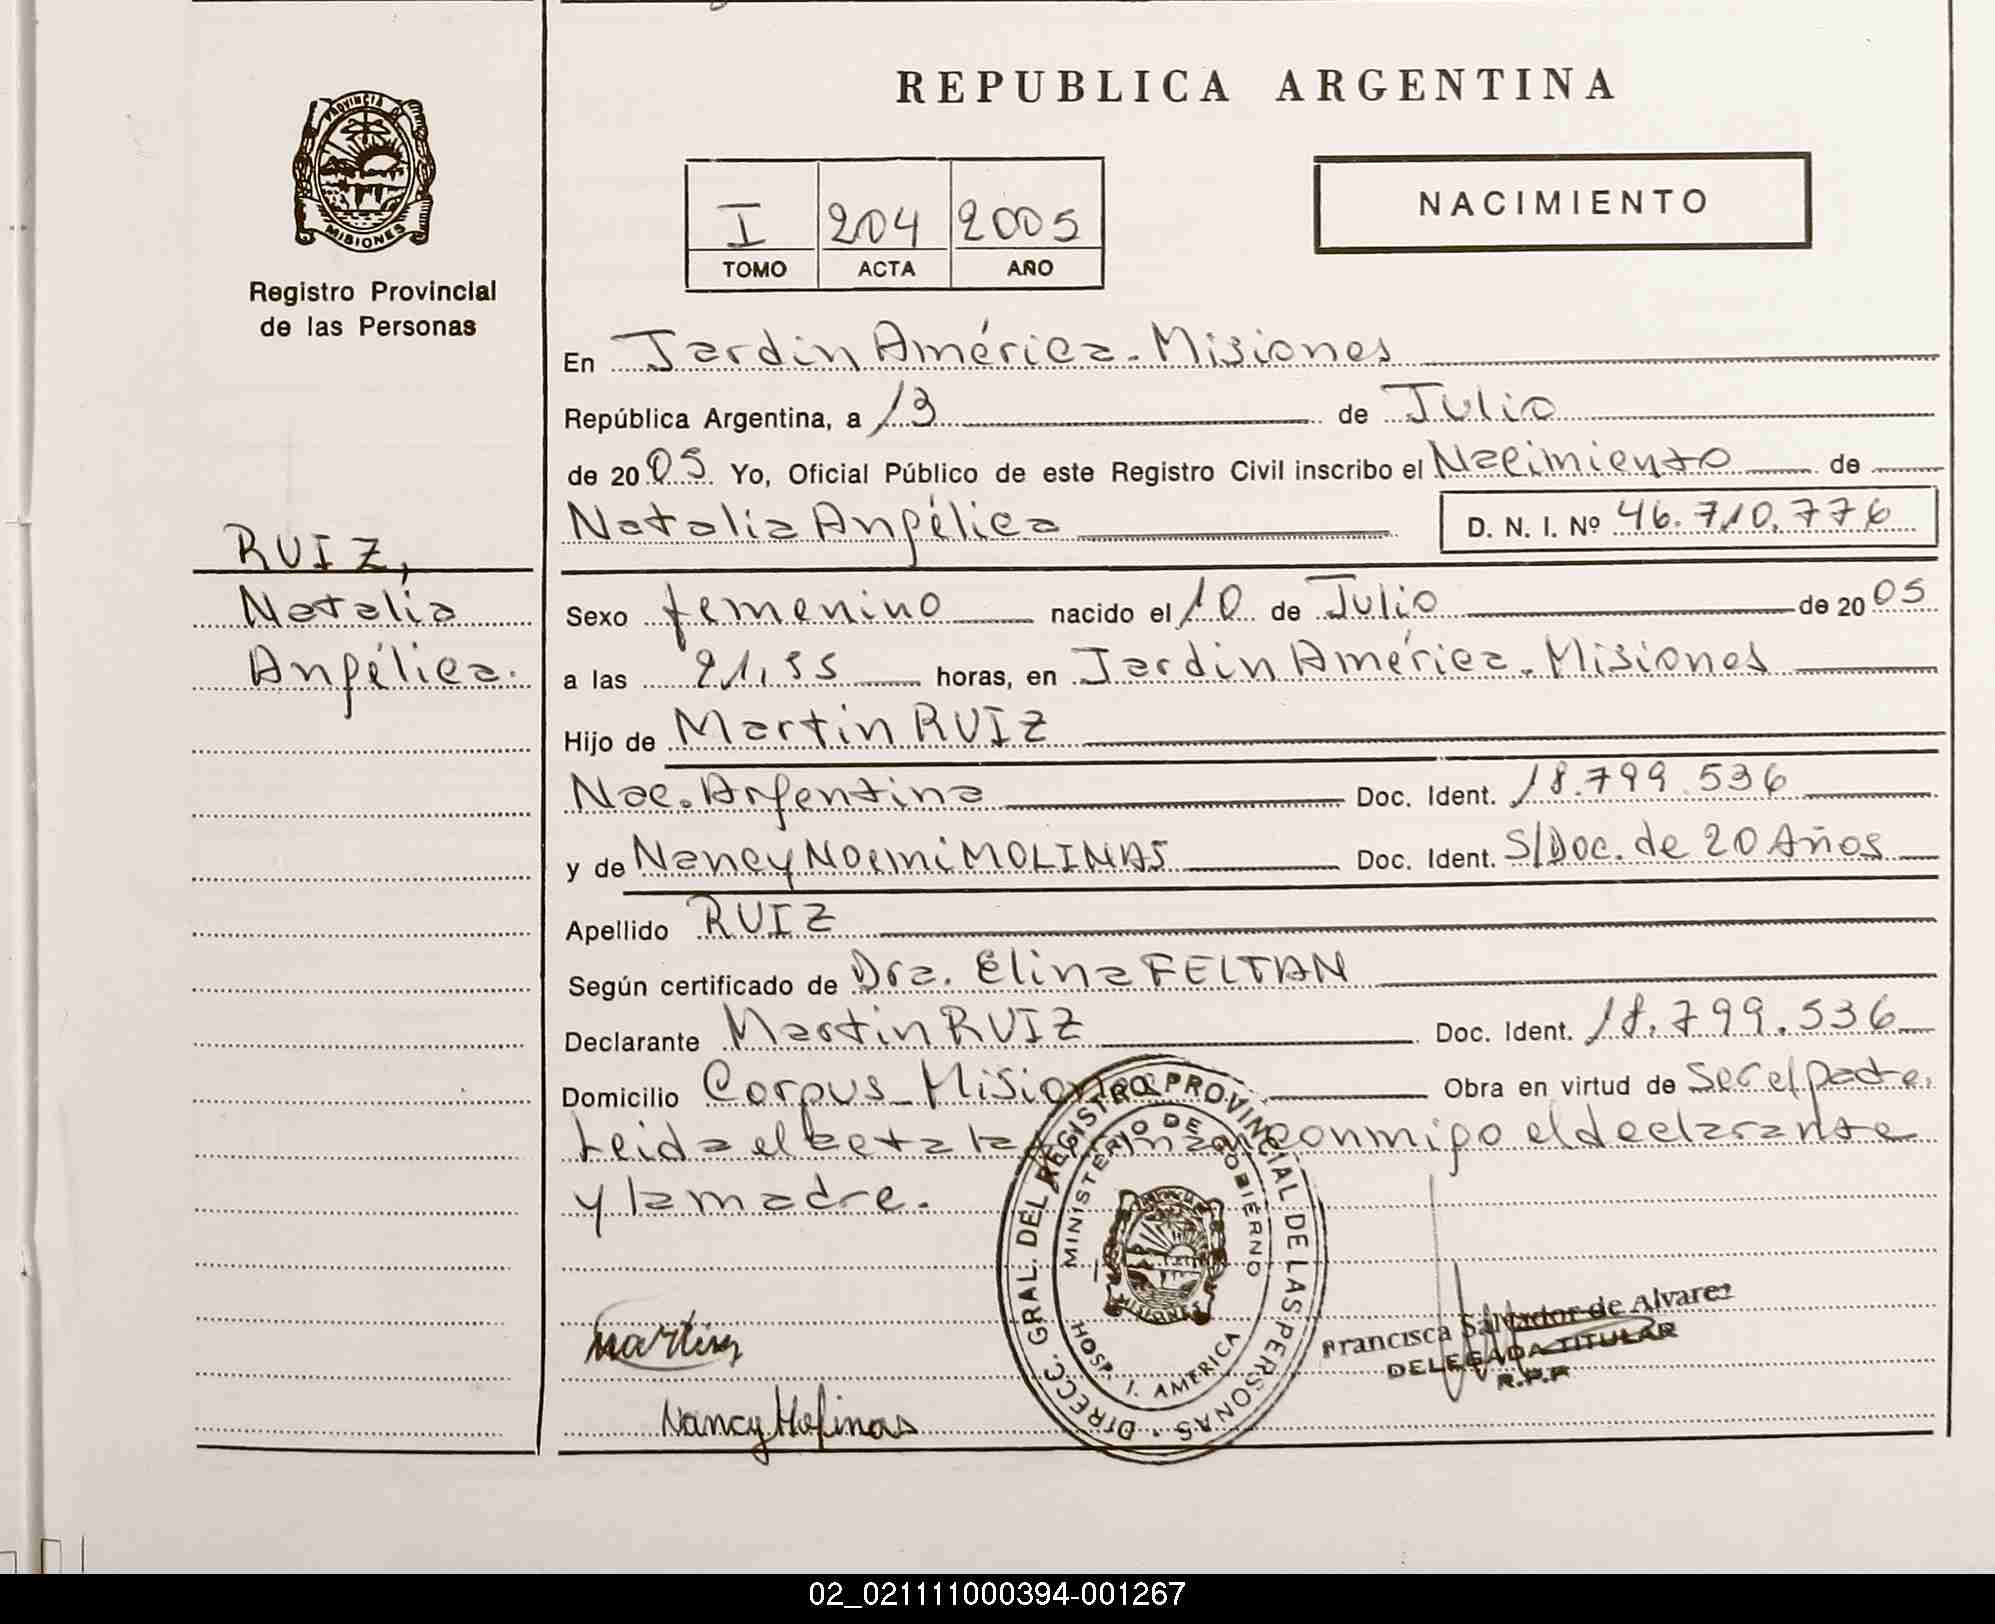 REPUBLICA ARGENTINA
PROVINCIA DE
MISIONES
Registro Provincial
de las Personas
I 204 2005
TOMO ACTA AÑO
NACIMIENTO
En Jardin América - Misiones
República Argentina, a 13 de Julio
de 2005 Yo, Oficial Público de este Registro Civil inscribo el Nacimiento de
Natalia Angélica D. N. I. Nº 46.710.776
RUIZ,
Natalia
Angélica.
Sexo femenino nacido el 10 de Julio de 2005
a las 21,55 horas, en Jardin América - Misiones
Hijo de Martin RUIZ
Nac. Argentina Doc. Ident. 18.799.536
y de Nancy Noemi MOLINAS Doc. Ident. S/Doc. de 20 Años
Apellido RUIZ
Según certificado de Dra. Elina FELTAN
Declarante Martin RUIZ Doc. Ident. 18.799.536
Domicilio Corpus - Misiones Obra en virtud de ser el padre.
Leida el acta la firman conmigo el declarante
y la madre.
DIRECC. GRAL. DEL REGISTRO PROVINCIAL DE LAS PERSONAS
MINISTERIO DE GOBIERNO
MISIONES
HOSP. I. AMERICA
Martin
Nancy Molinas
Francisca Salvador de Alvarez
DELEGADA TITULAR
R.P.P
02_021111000394-001267